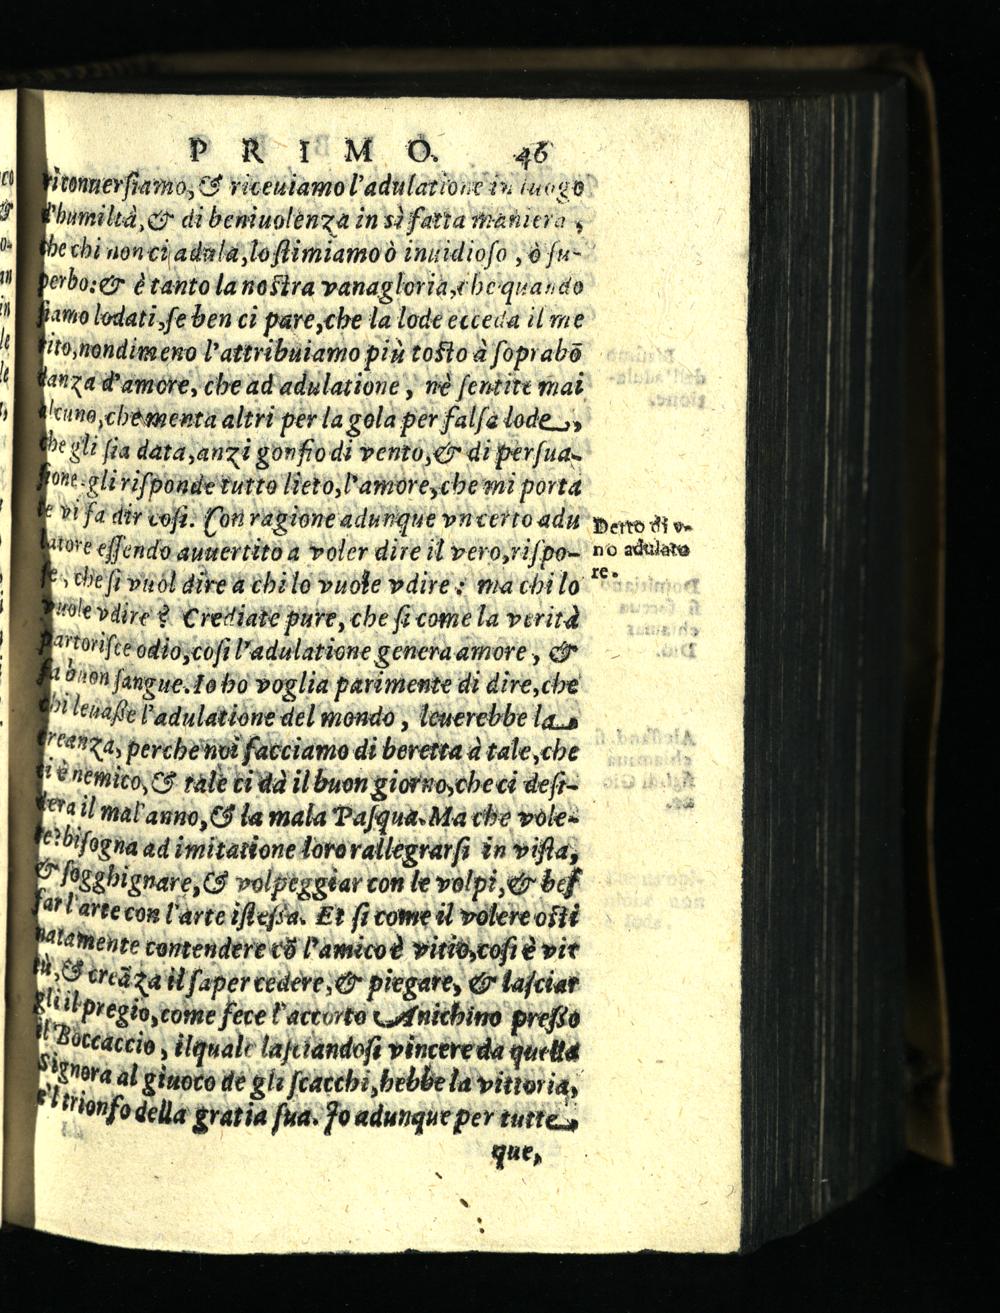 PRIMO. 46
ritonnersiamo, & riceuiamo l'adulatione in luogo
d'humiltà, & di beniuolenza in sì fatta maniera,
che chi non ci adula, lo stimiamo ò inuidioso, ò su-
perbo: & è tanto la nostra vanagloria, che quando
siamo lodati, se ben ci pare, che la lode ecceda il me
rito, nondimeno l'attribuiamo più tosto à soprabō
danza d'amore, che ad adulatione, nè sentite mai
alcuno, che menta altri per la gola per falsa lode,
che gli sia data, anzi gonfio di vento, & di persua-
sione gli risponde tutto lieto, l'amore, che mi porta
te vi fa dir così. Con ragione adunque vn certo adu
latore essendo auuertito a voler dire il vero, rispo-
se, che si vuol dire a chi lo vuole vdire: ma chi lo
vuole vdire? Crediate pure, che si come la verità
partorisce odio, così l'adulatione genera amore, &
fa buon sangue. Io ho voglia parimente di dire, che
chi leuasse l'adulatione del mondo, leuerebbe la
creanza, perche noi facciamo di beretta à tale, che
ci è nemico, & tale ci dà il buon giorno, che ci desi-
dera il mal'anno, & la mala Pasqua. Ma che vole-
te? bisogna ad imitatione loro rallegrarsi in vista,
& sogghignare, & volpeggiar con le volpi, & bef
far l'arte con l'arte istessa. Et si come il volere osti
natamente contendere cō l'amico è vitio, così è vir
tù, & creāza il saper cedere, & piegare, & lasciar
gli il pregio, come fece l'accorto Anichino presso
il Boccaccio, ilquale lasciandosi vincere da quella
Signora al giuoco de gli scacchi, hebbe la vittoria,
e'l trionfo della gratia sua. Io adunque per tutte
que,
Detto di v-
no adulato
re.